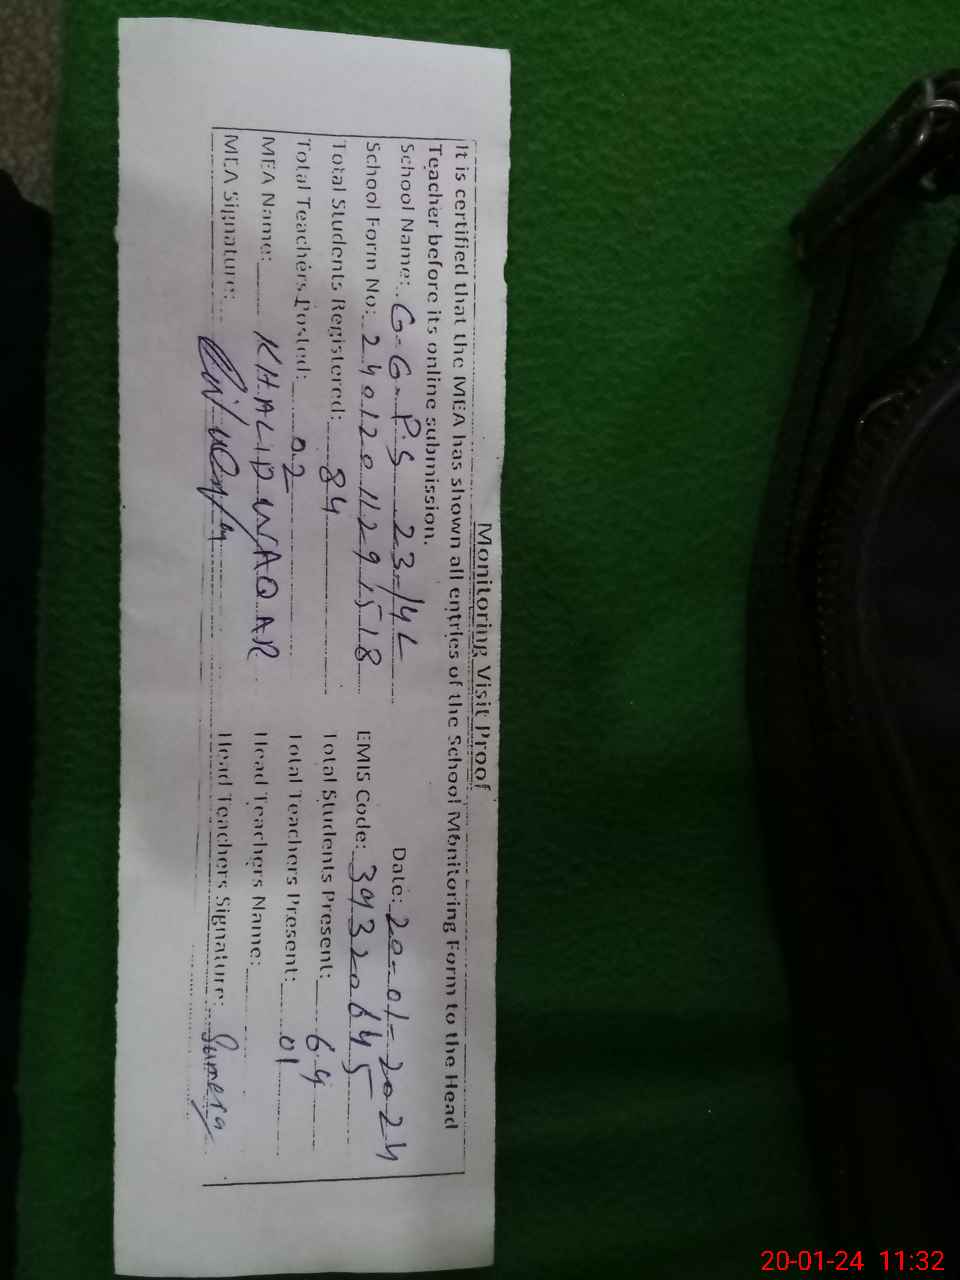 Monitoring Visit Proof
It is certified that the MEA has shown all entries of the School Monitoring Form to the Head
Teacher before its online submission.
Date: 20-01-2024
School Name: G.G.P.S 23/14L
School Form No: 24012011291518 EMIS Code: 39320645
Total Students Registered: 84 Total Students Present: 64
Total Teachers Posted: 02 Total Teachers Present: 01
MEA Name: KHALID WAQAR Head Teachers Name:
MEA Signature: Head Teachers Signature: Sumera
20-01-24 11:32